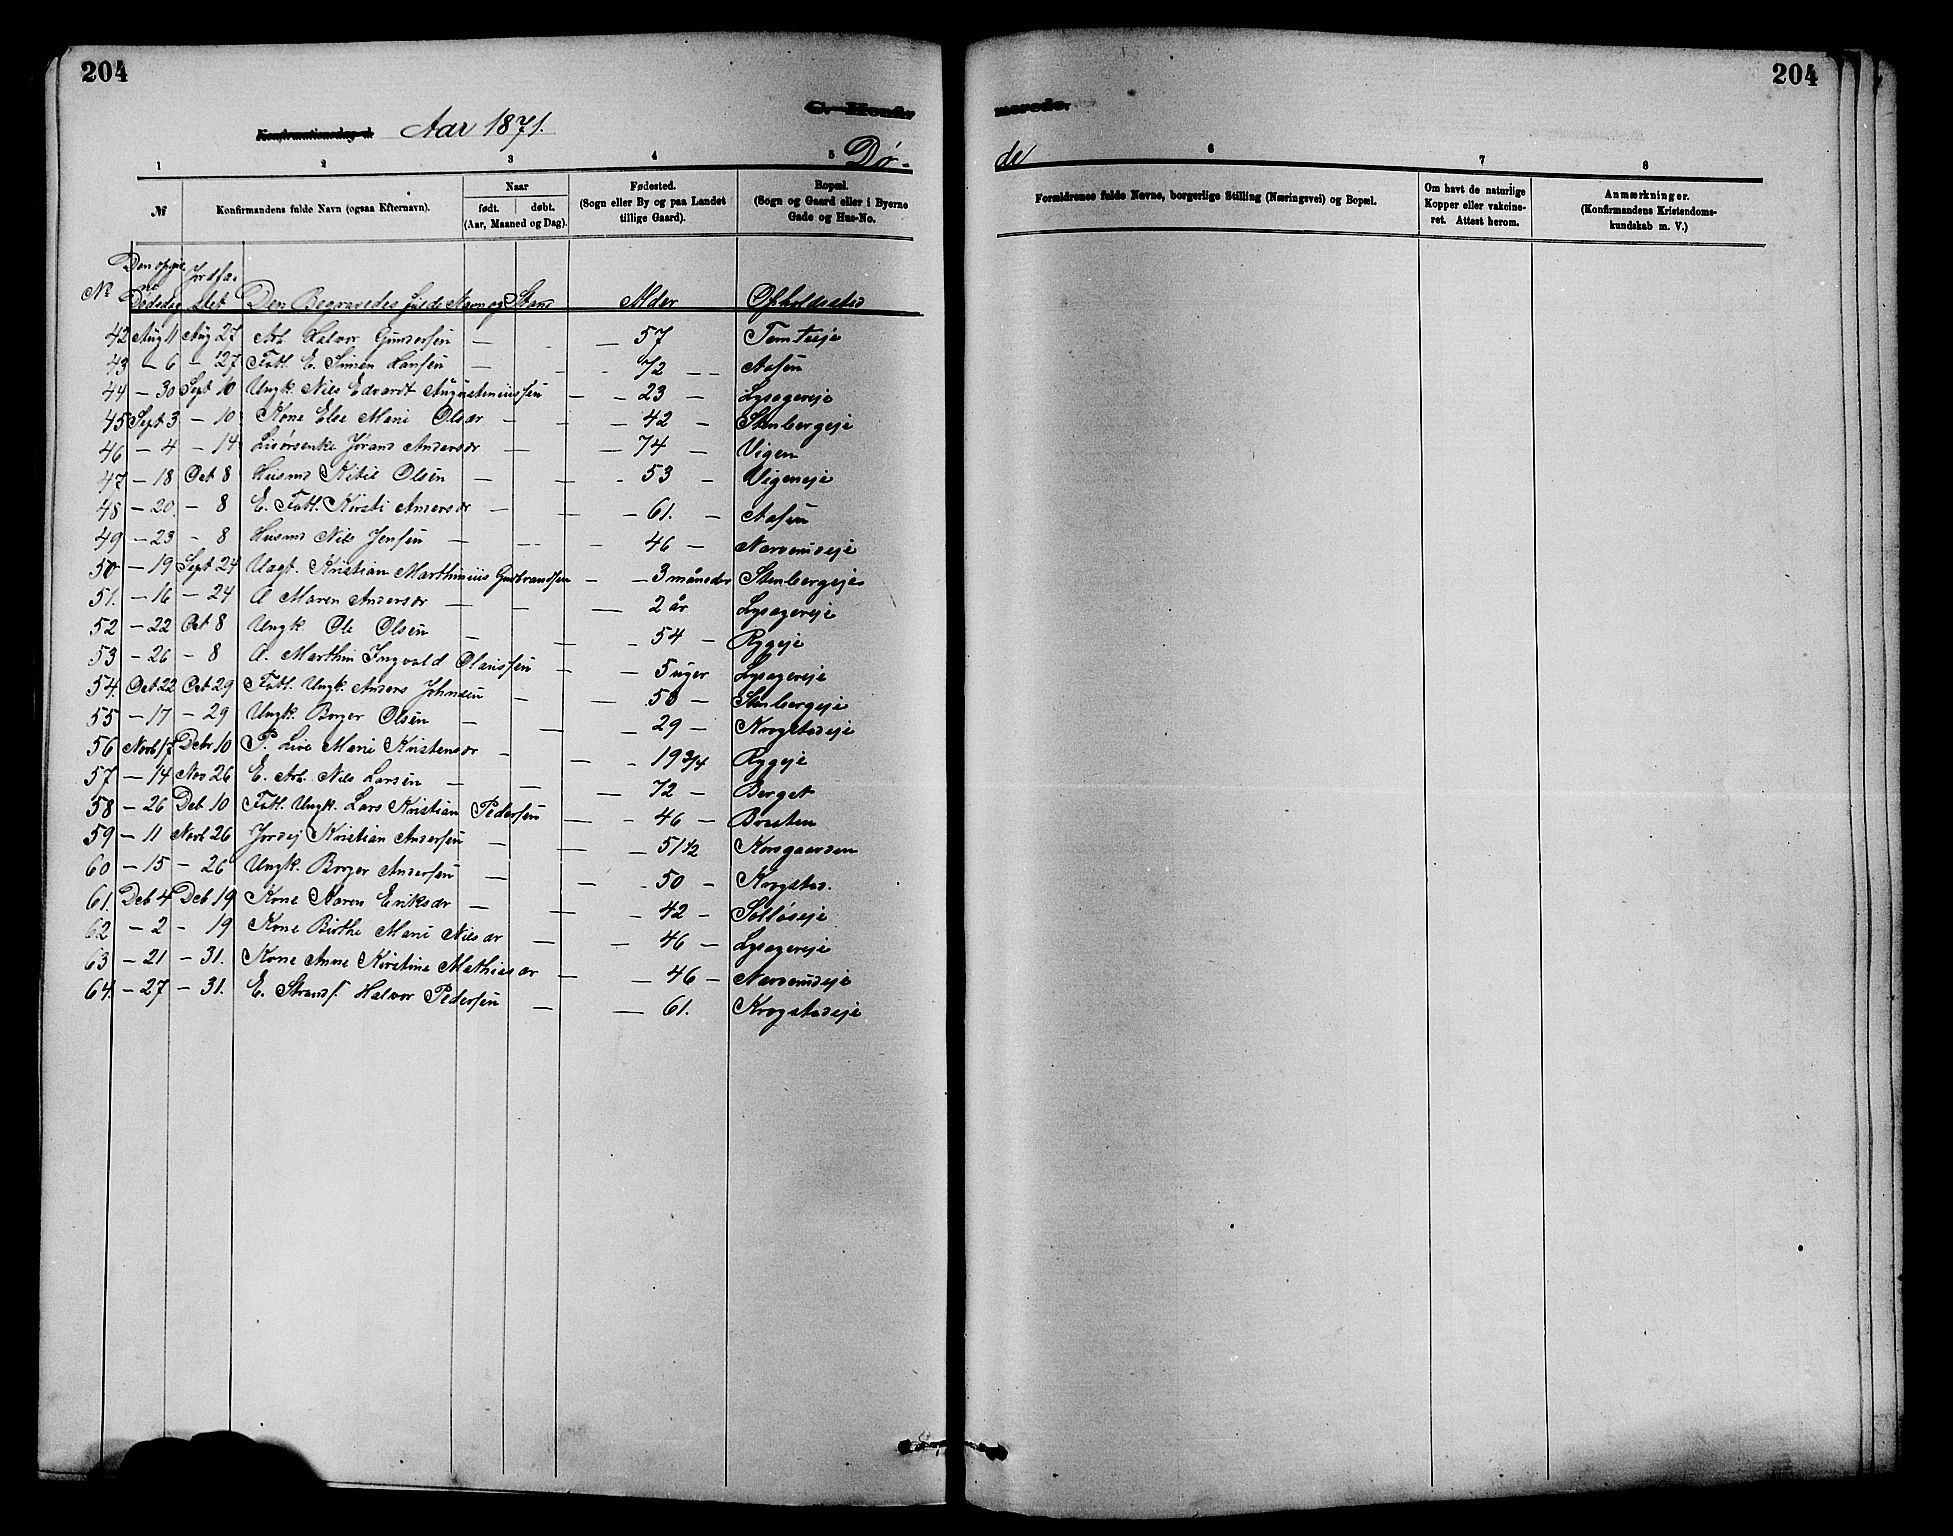 204
204
C. Konfir
merede.
Konfirmationsdag d. Aar 1871.
Dø-
de
1 2 3 4 5 6 7 8
№ Konfirmandens fulde Navn (ogsaa Efternavn). Naar født. døbt. (Aar, Maaned og Dag). Fødested. (Sogn eller By og paa Landet tillige Gaard). Bopæl. (Sogn og Gaard eller i Byerne Gade og Hus-No.
Formldrenes fulde Navne, borgerlige Stilling (Næringsvei) og Bopæl. Om havt de naturlige Kopper eller vakcineret. Attest herom. Anmærkninger. (Konfirmandens Kristendomskundskab m. V.)
Nr Dødsdag Jordfæstet Den Begravedes fulde Navn og Stand Alder Opholdssted
42 Aug 11 Aug 27 Arb Halvor Gundersen — — 57 Tomteeje
43 — 6 — 27 Fatt. E. Simen Hansen — — 72 — Aasen
44 — 30 Sept 10 Ungk Nils Edvardt Augustiniussen — — 23 — Lysagereje
45 Sept 3 — 10 Kone Else Marie Olsdr — — 42 — Stenbergeje
46 — 4 — 14 Jørand Andersdr — — 74 — Vigen
47 — 18 Oct 8 Husmd Kittil Olsen — — 53 — Vigeneje
48 — 20 — 8 E. Fatt. Kirsti Andersdr — — 61. — Aasen
49 — 23 — 8 Husmd Nils Jensen — — 46 — Narverudeje
50 — 19 Sept 24 Uægt. Kristian Marthinius Gudbrandsen — 3 måneder Stenbergeje
51. — 16 — 24 Æ Maren Andersdr — — 2 år Lysagereje
52 — 22 Oct 8 Ungk Ole Olsen — — 54 — Ryggeje
53 — 26 — 8 Æ. Marthin Ingvald Olaussen — 5 uger Lysagereje
54. Oct 22 Oct 29 Fatt. Ungk. Anders Johnsen — — 50 — Stenbergeje
55 — 17 — 29 Ungk. Borger Olsen — — 29 — Krogstadeje
56 Novb 17 Decbr 10 P. Live Marie Kristensdr — — 19 3/4 Ryggeje
57 — 14 Nov 26 E. Arb. Nils Larsen — — 72 — Berget
58 — 26 Deb 10 Fatt. Ungk. Lars Kristian Pedersen — 46 — Braaten
59 — 11 Novb 26 Jordej Kristian Andersen — — 51 1/2 Korsgaarden
60 — 15 — 26 Ungk. Borger Andersen — — 50 — Krogstad.
61. Deb 4 Deb 19 Kone Karen Eriksdr — — 42 — Solløseje
62 — 2 — 19 Kone Birthe Marie Nilsdr — — 46 — Lysagereje
63 — 21 — 31. Kone Anne Kirstine Mathiasdr — — 46 — Narverudeje
64. — 27 — 31. E. Strandf. Halvor Pedersen — — 61. Krogstadeje